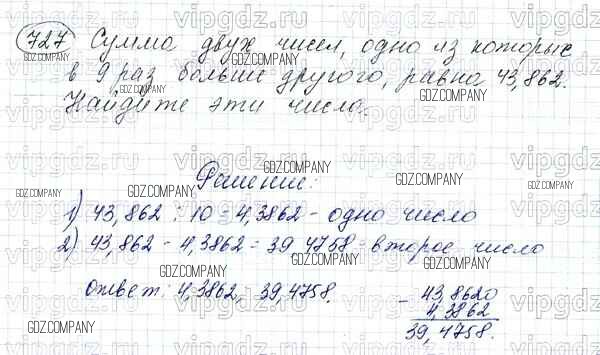 727 Сумма двух чисел, одно из которых
в 9 раз больше другого, равна 43,862.
Найдите эти числа.
Решение:
1) 43,862 : 10 = 4,3862 - одно число
2) 43,862 - 4,3862 = 39,4758 - второе число
Ответ: 4,3862, 39,4758.
- 43,8620
4,3862
39,4758.
vipgdz.ru
GDZ.COMPANY